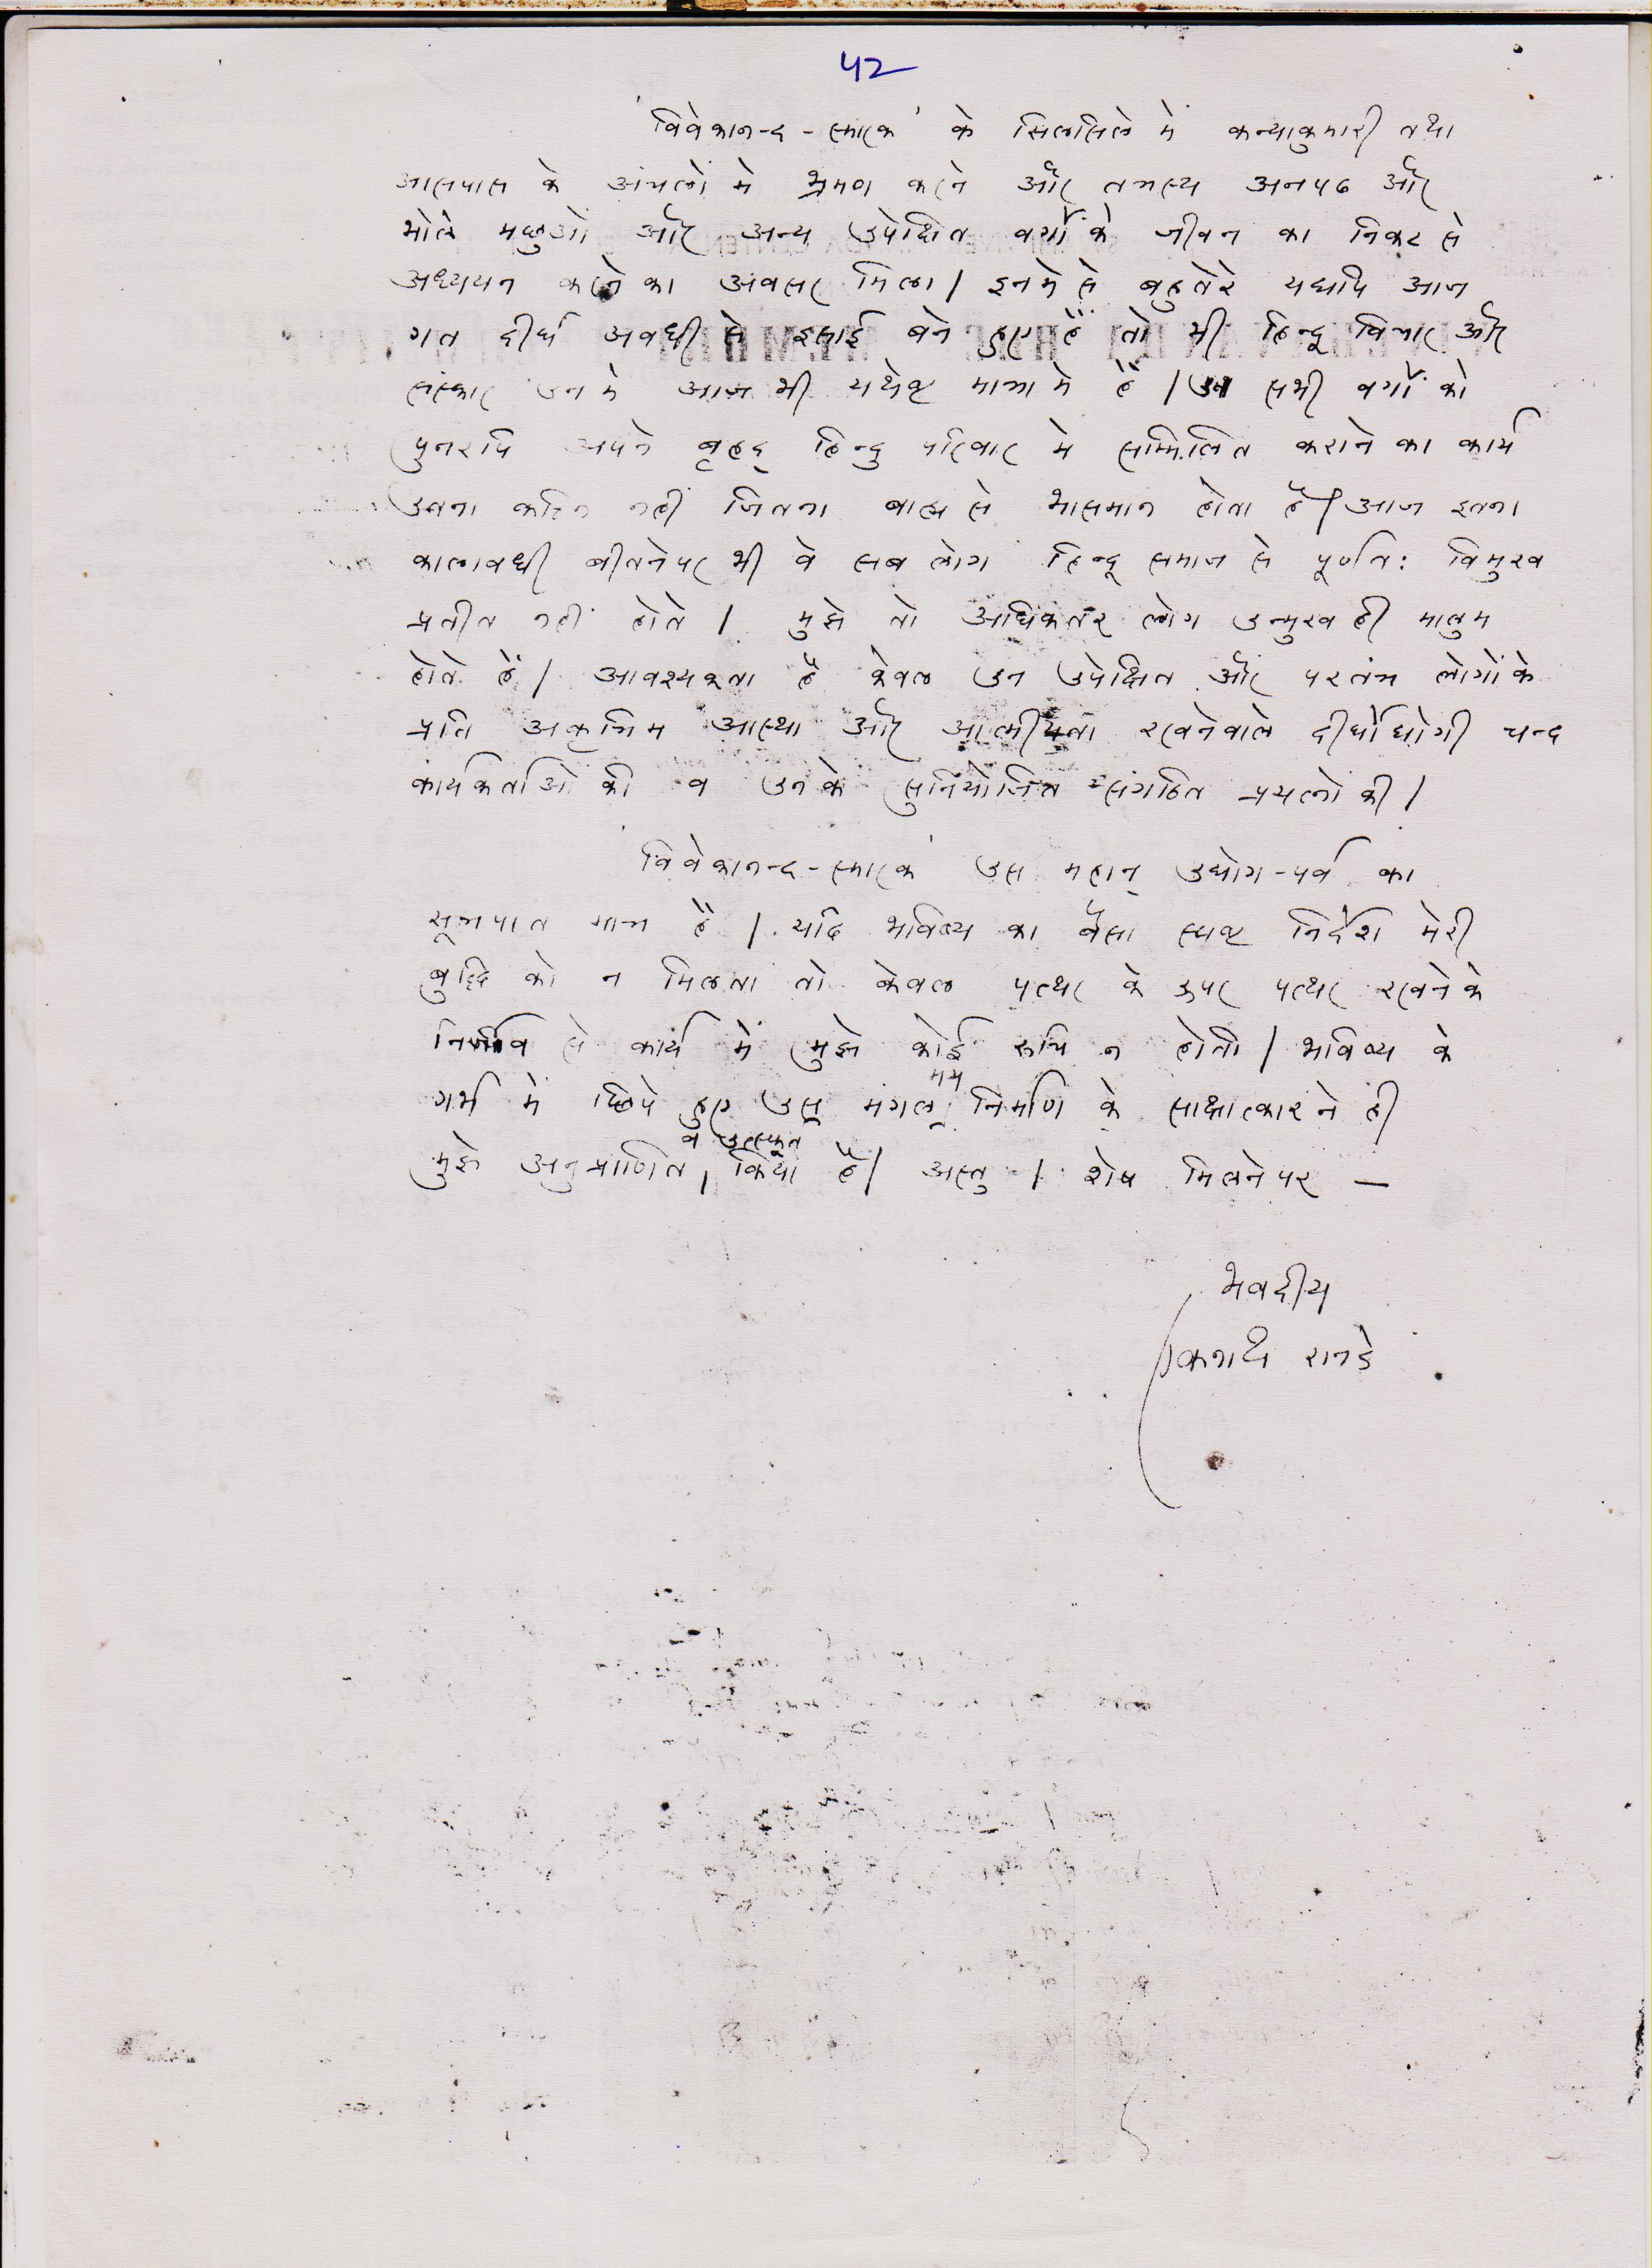 42
'विवेकानन्द-स्मारक' के सिलसिले में कन्याकुमारी तथा
आसपास के अंचलों मे भ्रमण करने और तत्रस्थ अनपढ और
भोले मछुओ और अन्य उपेक्षित वर्गों के जीवन का निकट से
अध्ययन करने का अवसर मिला। इनमे से बहुतेरे यद्यपि आज
गत दीर्घ अवधी से इसाई बने हुए हैं तो भी हिन्दू विचार और
संस्कार उनमे आज भी यथेष्ट मात्रा मे हैं। उन सभी वर्गों को
पुनरपि अपने बृहद् हिन्दु परिवार मे सम्मिलित कराने का कार्य
उतना कठिन नहीं जितना बाह्य से भासमान होता है। आज इतना
कालावधी बीतनेपर भी वे सब लोग हिन्दू समाज से पूर्णतः विमुख
प्रतीत नहीं होते। मुझे तो अधिकतर लोग उन्मुख ही मालुम
होते हैं। आवश्यकता है केवल उन उपेक्षित और परतंत्र लोगों के
प्रति अकृत्रिम आस्था और आत्मीयता रखनेवाले दीर्घोद्योगी चन्द
कार्यकर्ताओ की व उनके सुनियोजित संगठित प्रयत्नो की।
विवेकानन्द-स्मारक उस महान् उद्योग-पर्व का
सूत्रपात मात्र है। यदि भविष्य का वैसा स्पष्ट निर्देश मेरी
बुद्धि को न मिलता तो केवल पत्थर के ऊपर पत्थर रखने के
निर्जीव से कार्य में मुझे कोई रूचि न होती। भविष्य के
गर्भ में छिपे हुए उस मंगलमय निर्माण के साक्षात्कार ने ही
मुझे अनुप्राणित व उत्स्फूर्त किया है। अस्तु। शेष मिलनेपर —
भवदीय
एकनाथ रानडे